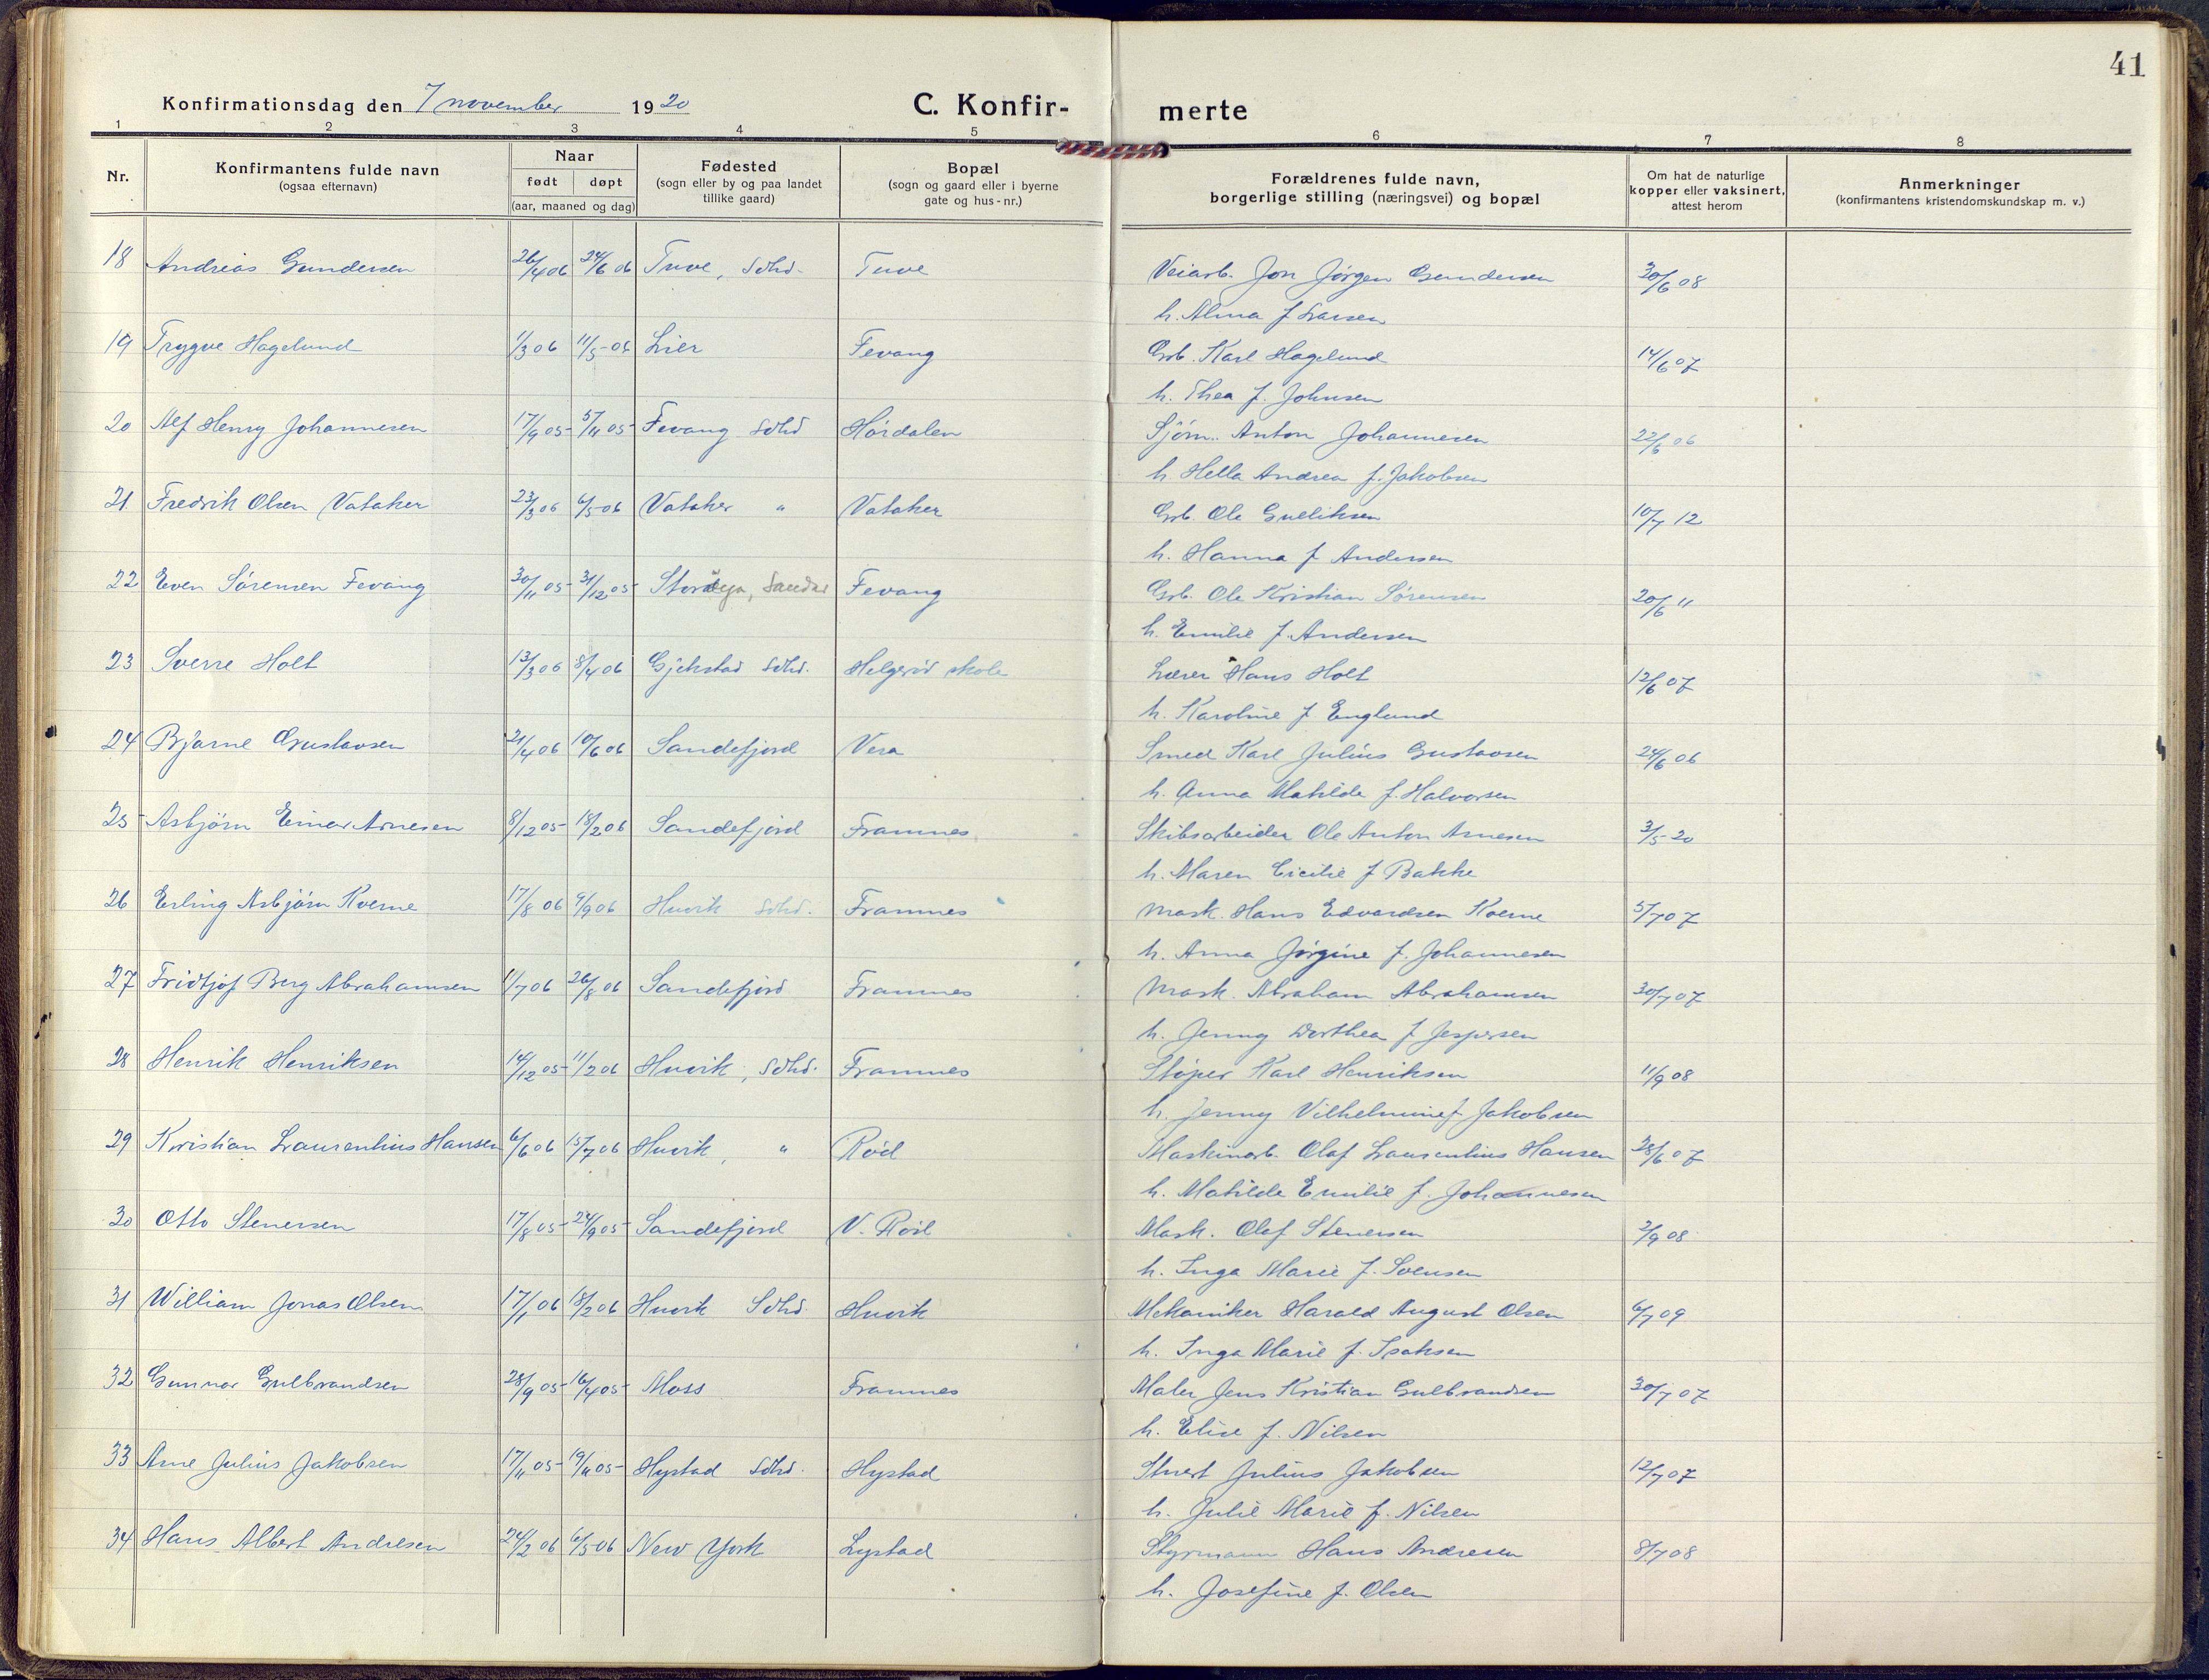 41
Konfirmationsdag den 7 november 1920
C. Konfir- merte
1 2 3 4 5 6 7 8
Nr.
Konfirmantens fulde navn
(ogsaa efternavn)
Naar
født døpt
(aar, maaned og dag)
Fødested
(sogn eller by og paa landet
tillike gaard)
Bopæl
(sogn og gaard eller i byerne
gate og hus-nr.)
Forældrenes fulde navn,
borgerlige stilling (næringsvei) og bopæl
Om hat de naturlige
kopper eller vaksinert,
attest herom
Anmerkninger
(konfirmantens kristendomskundskap m. v.)
18 Andreas Gundersen 26/4 06 24/6 06 Tuve, Sdhd. Tuve Veiarb. Jon Jørgen Gundersen 30/6 08
h. Alma f Larsen
19 Trygve Hagelund 1/3 06 11/5-06 Lier Fevang Grb. Karl Hagelund 14/6 07
h. Thea f. Johnsen
20 Alf Henry Johannesen 17/9 05- 5/11 05- Fevang Sdhd Hørdalen Sjøm. Anton Johannesen 22/6 06
h Hella Andrea f. Jakobsen
21 Fredrik Olsen Vataker 23/3 06 6/5-06 Vataker " Vataker Grb. Ole Gulliksen 10/7 12
h. Hanna f Andersen
22 Even Sørensen Fevang 30/11 05- 31/12 05- Sandar Fevang Grb. Ole Kristian Sørensen 20/6 11
h. Emilie f. Andersen
23 Sverre Holt 13/3 06 8/4 06 Gjekstad Sdhd. Helgerød skole Lærer Hans Holt 12/6 07
h. Karoline f Englund
24 Bjarne Gustavsen 21/4 06 10/6 06 Sandefjord Vera Smed Karl Julius Gustavsen 24/6 06
h. Anna Matilde f. Halvorsen
25- Asbjørn Einar Arnesen 8/12 05- 18/2 06 Sandefjord Framnes Skibsarbeider Ole Anton Arnesen 3/5-20
h. Maren Cicilie f Bakke
26 Erling Asbjørn Kverne 17/8 06 9/9 06 Huvik Sdhd. Framnes Mask. Hans Edvardsen Kverne 5/7 07
h. Anna Jørgine f. Johannesen
27 Fridtjof Berg Abrahamsen 11/7 06 26/8 06 Sandefjord Framnes Mask. Abraham Abrahamsen 30/7 07
h. Jenny Dorthea f Jespersen
28 Henrik Henriksen 14/12 05- 11/2 06 Huvik, Sdhd. Framnes Støper Karl Henriksen 11/9 08
h. Jenny Vilhelmine f Jakobsen
29 Kristian Laurentius Hansen 6/6 06 15/7 06 Huvik, " Rød Maskinarb. Olaf Laurentius Hansen 28/6 07
h. Matilde Emilie f. Johannesen
30 Otto Stenersen 17/8 05- 24/9 05- Sandefjord V. Rød Mask. Olaf Stenersen 2/9 08
h. Inga Marie f. Svensen
31 William Jonas Olsen 17/1 06 18/2 06 Huvik Sdhd. Huvik Mekaniker Harald August Olsen 6/7 09
h. Inga Marie f. Isaksen
32 Gunnar Gulbrandsen 28/9 05- 16/4 05- Moss Framnes Maler Jens Kristian Gulbrandsen 30/7 07
h. Elise f. Nilsen
33 Arne Julius Jakobsen 17/11 05- 19/11 05- Hystad Sdhd. Hystad Stuert Julius Jakobsen 12/7 07
h. Julie Marie f. Nilsen
34 Hans Albert Andresen 24/2 06 6/5 06 New York Lystad Styrmann Hans Andresen 8/7 08
h. Josefine f. Olsen